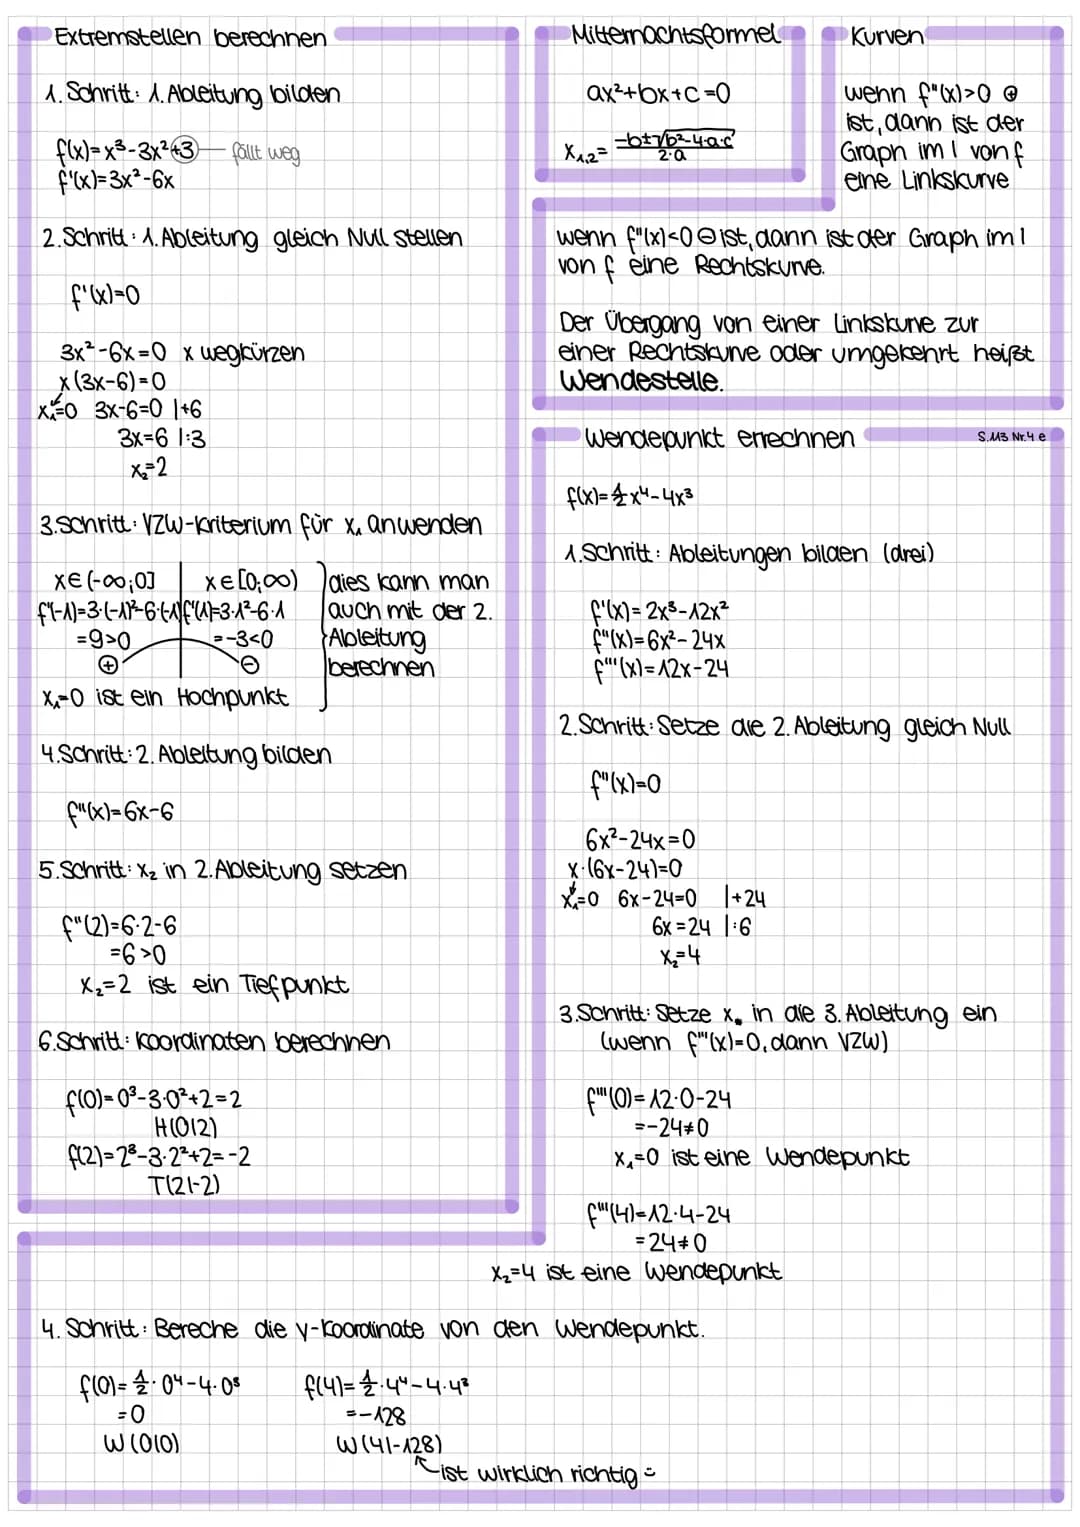 Extremstellen berechnen
1. Schritt: 1. Ableitung bilden
f(x)=x³-3x²+3 fällt weg
f'(x)=3x²-6x
2. Schritt: 1. Ableitung gleich Null stellen
f'(x)=0
3x²-6x=0 x wegkürzen
x(3x-6)=0
x₁=0 3x-6=0 |+6
3x=6 |:3
x₂=2
3. Schritt: VZW-Kriterium für x₁ anwenden
x∈(-∞;0] x∈[0;∞)
f'(-1)=3·(-1)²-6·(-1) f'(1)=3·1²-6·1
=9>0 =-3<0
⊕ ⊖
dies kann man
auch mit der 2.
Ableitung
berechnen
x₁=0 ist ein Hochpunkt
4. Schritt: 2. Ableitung bilden
f"(x)=6x-6
5. Schritt: x₂ in 2. Ableitung setzen
f"(2)=6·2-6
=6>0
x₂=2 ist ein Tiefpunkt
6. Schritt: Koordinaten berechnen
f(0)=0³-3·0²+2=2
H(0|2)
f(2)=2³-3·2²+2=-2
T(2|-2)
Mitternachtsformel
ax²+bx+c=0
x₁,₂= -b±√b²-4·a·c / 2·a
Kurven
wenn f"(x)>0 ⊕
ist, dann ist der
Graph im I von f
eine Linkskurve
wenn f"(x)<0 ⊖ ist, dann ist der Graph im I
von f eine Rechtskurve.
Der Übergang von einer Linkskurve zur
einer Rechtskurve oder umgekehrt heißt
Wendestelle.
Wendepunkt errechnen S.113 Nr.4 e
f(x)=½x⁴-4x³
1. Schritt: Ableitungen bilden (drei)
f'(x)=2x³-12x²
f"(x)=6x²-24x
f'''(x)=12x-24
2. Schritt: Setze die 2. Ableitung gleich Null
f"(x)=0
6x²-24x=0
x·(6x-24)=0
x₁=0 6x-24=0 |+24
6x=24 |:6
x₂=4
3. Schritt: Setze x₀ in die 3. Ableitung ein
(wenn f'''(x)=0, dann VZW)
f'''(0)=12·0-24
=-24≠0
x₁=0 ist eine Wendepunkt
f'''(4)=12·4-24
=24≠0
x₂=4 ist eine Wendepunkt
4. Schritt: Bereche die y-Koordinate von den Wendepunkt.
f(0)=½·0⁴-4·0³ f(4)=½·4⁴-4·4³
=0 =-128
W(0|0) W(4|-128)
ist wirklich richtig :)